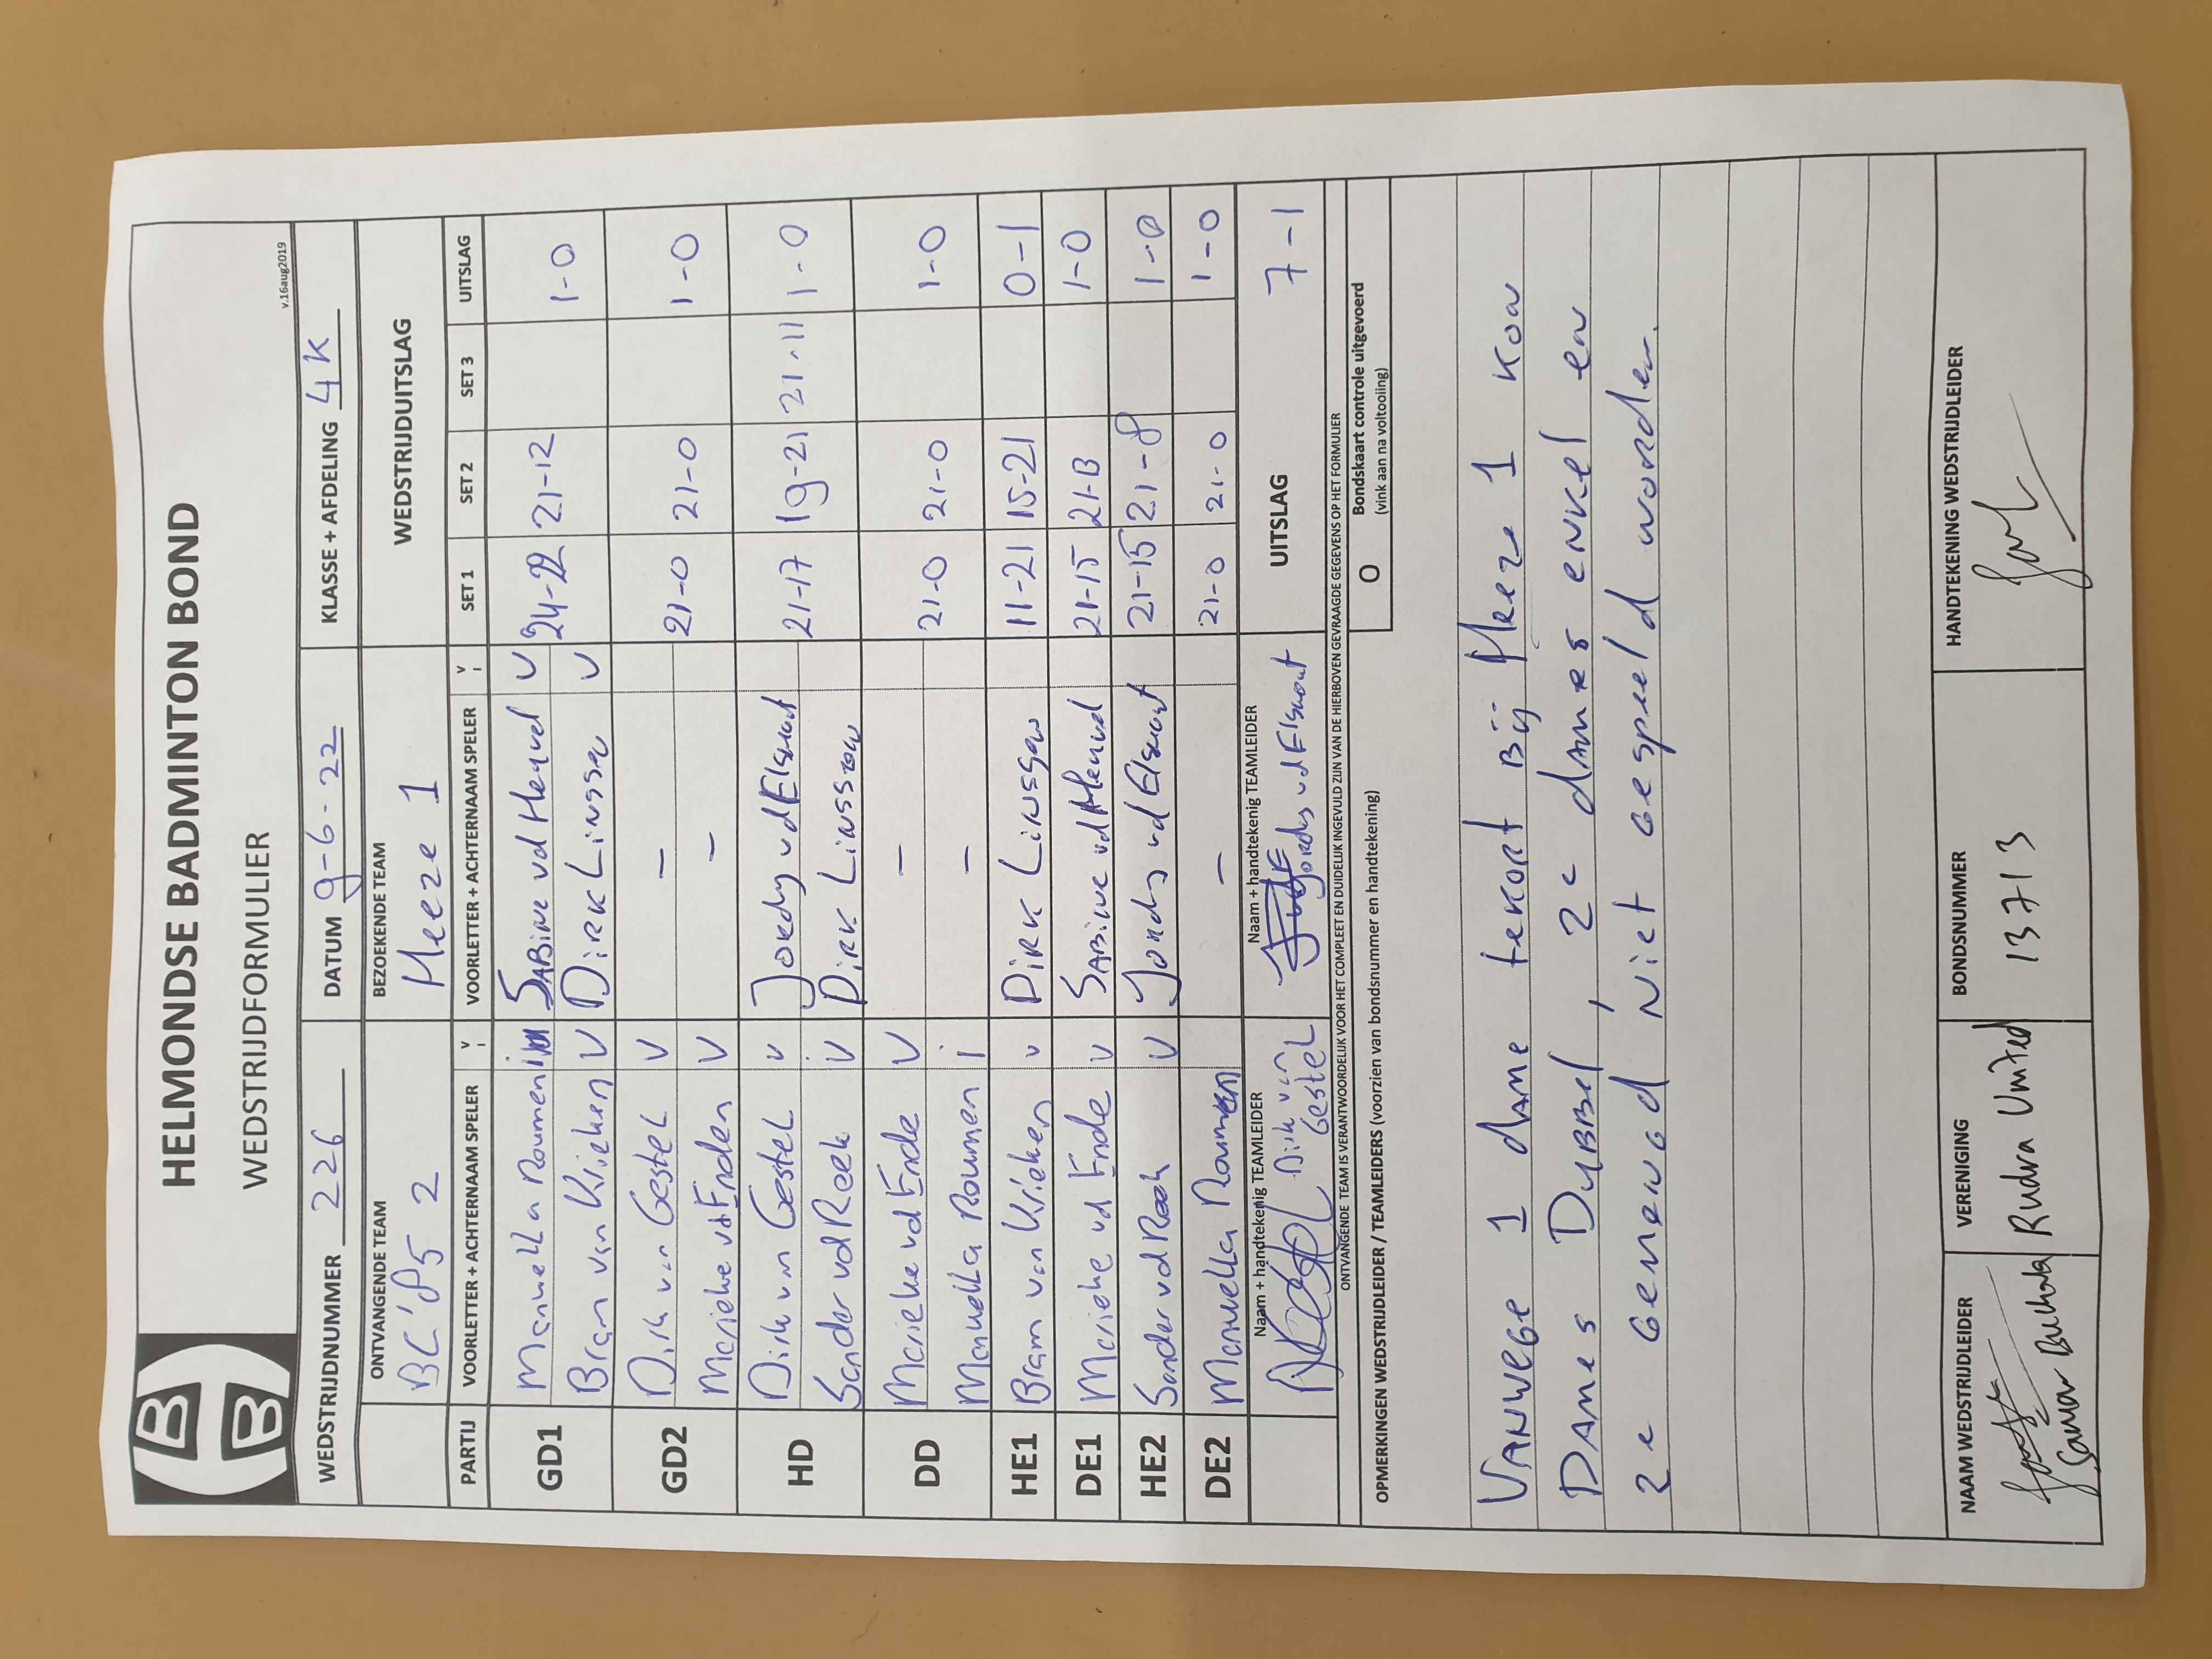 HELMONDSE BADMINTON BOND
WEDSTRIJDFORMULIER
v.16aug2019
WEDSTRIJDNUMMER 226 DATUM 9-6-22 KLASSE + AFDELING 4K
ONTVANGENDE TEAM BEZOEKENDE TEAM WEDSTRIJDUITSLAG
BC'85 2 Heeze 1
PARTIJ VOORLETTER + ACHTERNAAM SPELER V I VOORLETTER + ACHTERNAAM SPELER V I SET 1 SET 2 SET 3 UITSLAG
GD1 Manuella Roumen i Sabine vd Heuvel V 24-22 21-12 1-0
Bram van Krieken V Dirk Linssen V
GD2 Dirk van Gestel V - 21-0 21-0 1-0
Marieke vd Enden V -
HD Dirk van Gestel V Jordy vd Elshout 21-17 19-21 21-11 1-0
Sander vd Reek V Dirk Linssen
DD Marieke vd Ende V - 21-0 21-0 1-0
Manuella Roumen i -
HE1 Bram van Krieken V Dirk Linssen 11-21 15-21 0-1
DE1 Marieke vd Ende V Sabine vd Heuvel 21-15 21-13 1-0
HE2 Sander vd Reek V Jordy vd Elshout 21-15 21-8 1-0
DE2 Manuella Roumen - 21-0 21-0 1-0
Naam + handtekenig TEAMLEIDER Naam + handtekenig TEAMLEIDER UITSLAG 7-1
Dirk van Gestel Jordy vd Elshout
ONTVANGENDE TEAM IS VERANTWOORDELIJK VOOR HET COMPLEET EN DUIDELIJK INGEVULD ZIJN VAN DE HIERBOVEN GEVRAAGDE GEGEVENS OP HET FORMULIER
OPMERKINGEN WEDSTRIJDLEIDER / TEAMLEIDERS (voorzien van bondsnummer en handtekening)
O Bondskaart controle uitgevoerd
(vink aan na voltooiing)
Vanwege 1 dame tekort bij Heeze 1 kon
Dames Dubbel, 2e dames enkel en
2e Gemengd niet gespeeld worden.
NAAM WEDSTRIJDLEIDER VERENIGING BONDSNUMMER HANDTEKENING WEDSTRIJDLEIDER
Rudra United 13713